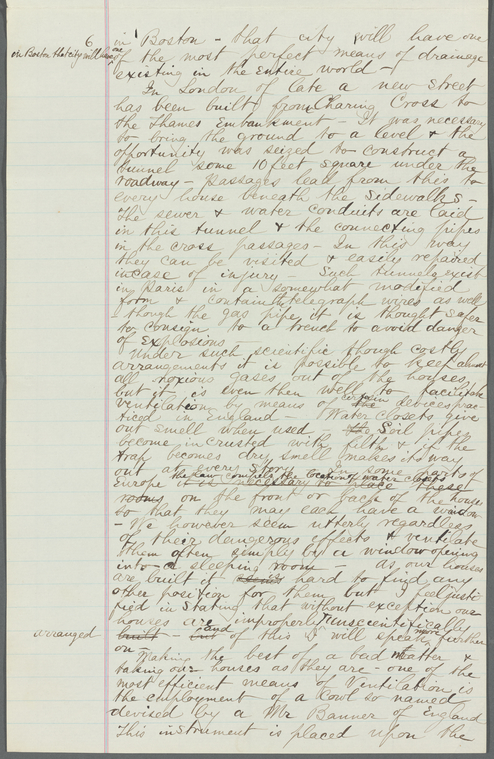 6
on Boston that city will have
in Boston - that city will have one
of the most perfect means of drainage
existing in the entire world -
In London of late a new street
has been built from Charing Cross to
the Thames Embankment - It was necessary
to bring the ground to a level & the
opportunity was seized to construct a
tunnel some 10 feet square under the
roadway - passages lead from this to
every house beneath the sidewalks -
The sewer & water conduits are laid
in this tunnel & the connecting pipes
in the cross passages - In this way
they can be visited & easily repaired
in case of injury Such tunnels exist
in Paris in a somewhat modified
form & contain the telegraph wires as well
- though the gas pipe, it is thought safer
to consign to a trench to avoid danger
of explosions
Under such scientific though costly
arrangements it is possible to keep almost
all noxious gases out of the houses
but it is even then well to facilitate
ventilation by means of certain devices prac-
ticed in England - Water closets give
out smell when used - Soil pipes
become incrusted with filth & if the
trap becomes dry smell makes its way
out at every story In some parts of
Europe the law compels the locating of water closets
it is necessary to place these
rooms on the front or back of the house
so that they may each have a window
- We however seem utterly regardless
of their dangerous effects & ventilate
them often simply by a window opening
into a sleeping room - as our houses
are built it seems hard to find any
other position for them but I feel justi-
fied in stating that without exception our
houses are improperly & unscientifically
arranged
built - and of this I will speak more further
on -
Making the best of a bad matter &
taking our houses as they are - one of the
most efficient means of Ventilation is
the employment of a Cowl so named
devised by a Mr Banner of England
This instrument is placed upon the